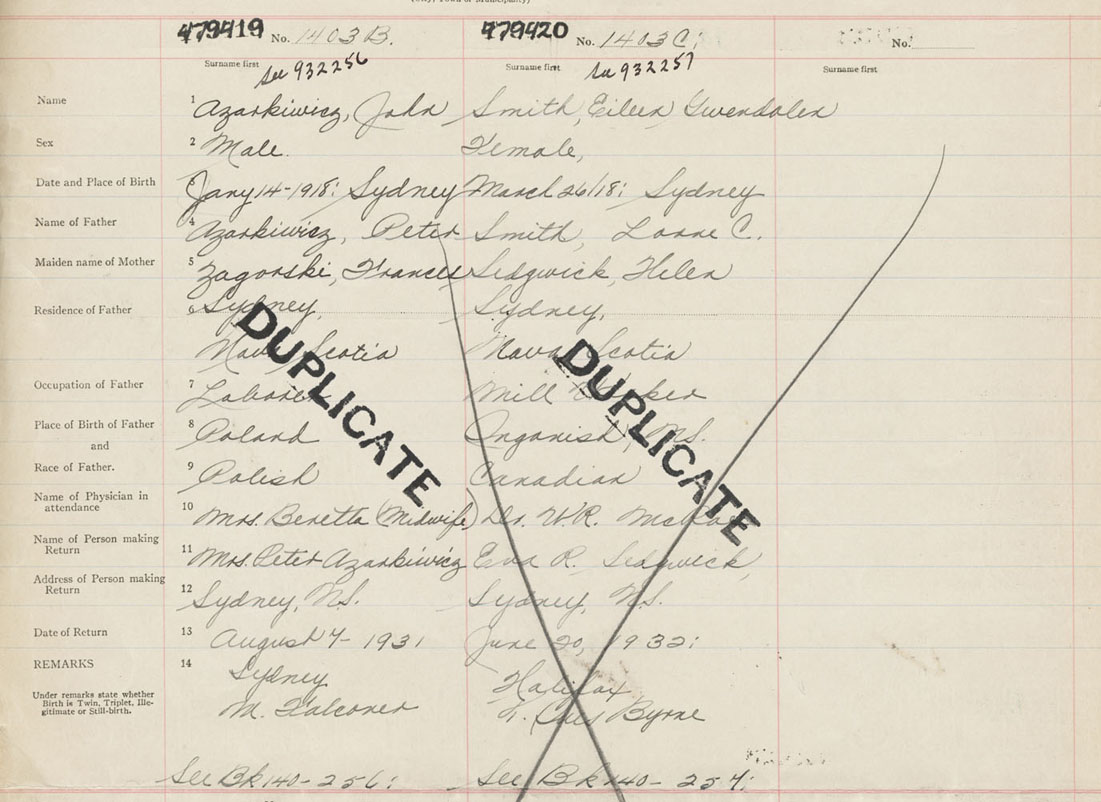 (City, Town or Municipality)
479419 No. 1403 B. 479420 No. 1403 C. No.
Surname first Surname first Surname first
See 932256 See 932257
Name 1 Azarkiwicz, John Smith, Eileen Gwendolen
Sex 2 Male. Female,
Date and Place of Birth 3 Jany 14-1918: Sydney March 26/18: Sydney
Name of Father 4 Azarkiwicz, Peter Smith, Lorne C.
Maiden name of Mother 5 Zagorski, Frances Sedgwick, Helen
Residence of Father 6 Sydney, Sydney,
Nova Scotia Nova Scotia
DUPLICATE DUPLICATE
Occupation of Father 7 Laborer Mill
Place of Birth of Father 8 Poland Inganish, N.S.
and
Race of Father. 9 Polish Canadian
Name of Physician in attendance 10 Mrs. Beretta (Midwife) Dr. W.R.
Name of Person making Return 11 Mrs. Peter Azarkiwicz Eva R. Sedgwick,
Address of Person making Return 12 Sydney, N.S. Sydney, N.S.
Date of Return 13 August 7- 1931 June 20, 1932:
REMARKS 14 Sydney Halifax
Under remarks state whether
Birth is Twin, Triplet, Ille-
gitimate or Still-birth.
M. Falconer Byrne
See Bk 140- 256: See Bk 140- 257: